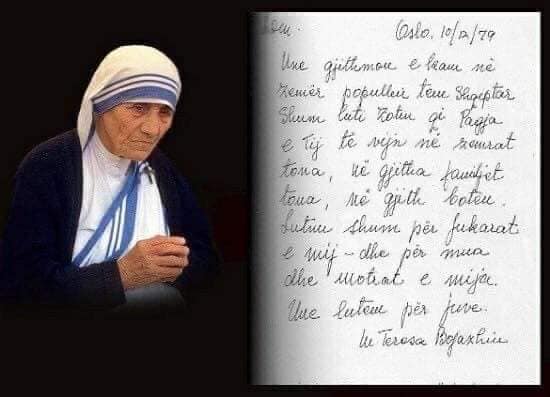 Oslo, 10/12/79
Une gjithmon e kam në
zemër popullin tem Shqiptar
Shum luti Zotin qi Pagja
e Tij të vijn në zemrat
tona, në gjitha familjet
tona, në gjith boten.
Lutnu shum për fukarat
e mij – dhe për mua
dhe motrat e mija.
Une lutem për juve.
M Teresa Bojaxhiu